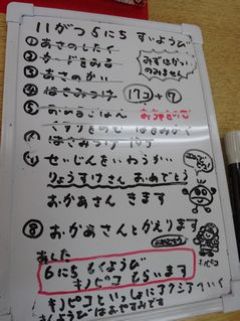 11がつ5にち すいようび
① あさのしたく
② カードをみる
③ あさのかい
みずはかい のみません
④ はさみつけ 17コ+9
⑤
くすりをのむ はをみがく
⑦ せいじんをいわうかい
りょうすけさん おめでとう
おかあさん きます
⑧ おかあさんとかえります
あした
6にち もくようび
キノピコ もらいます
キノピコといっしょにアクシアつくい
きんようびはおやすみです